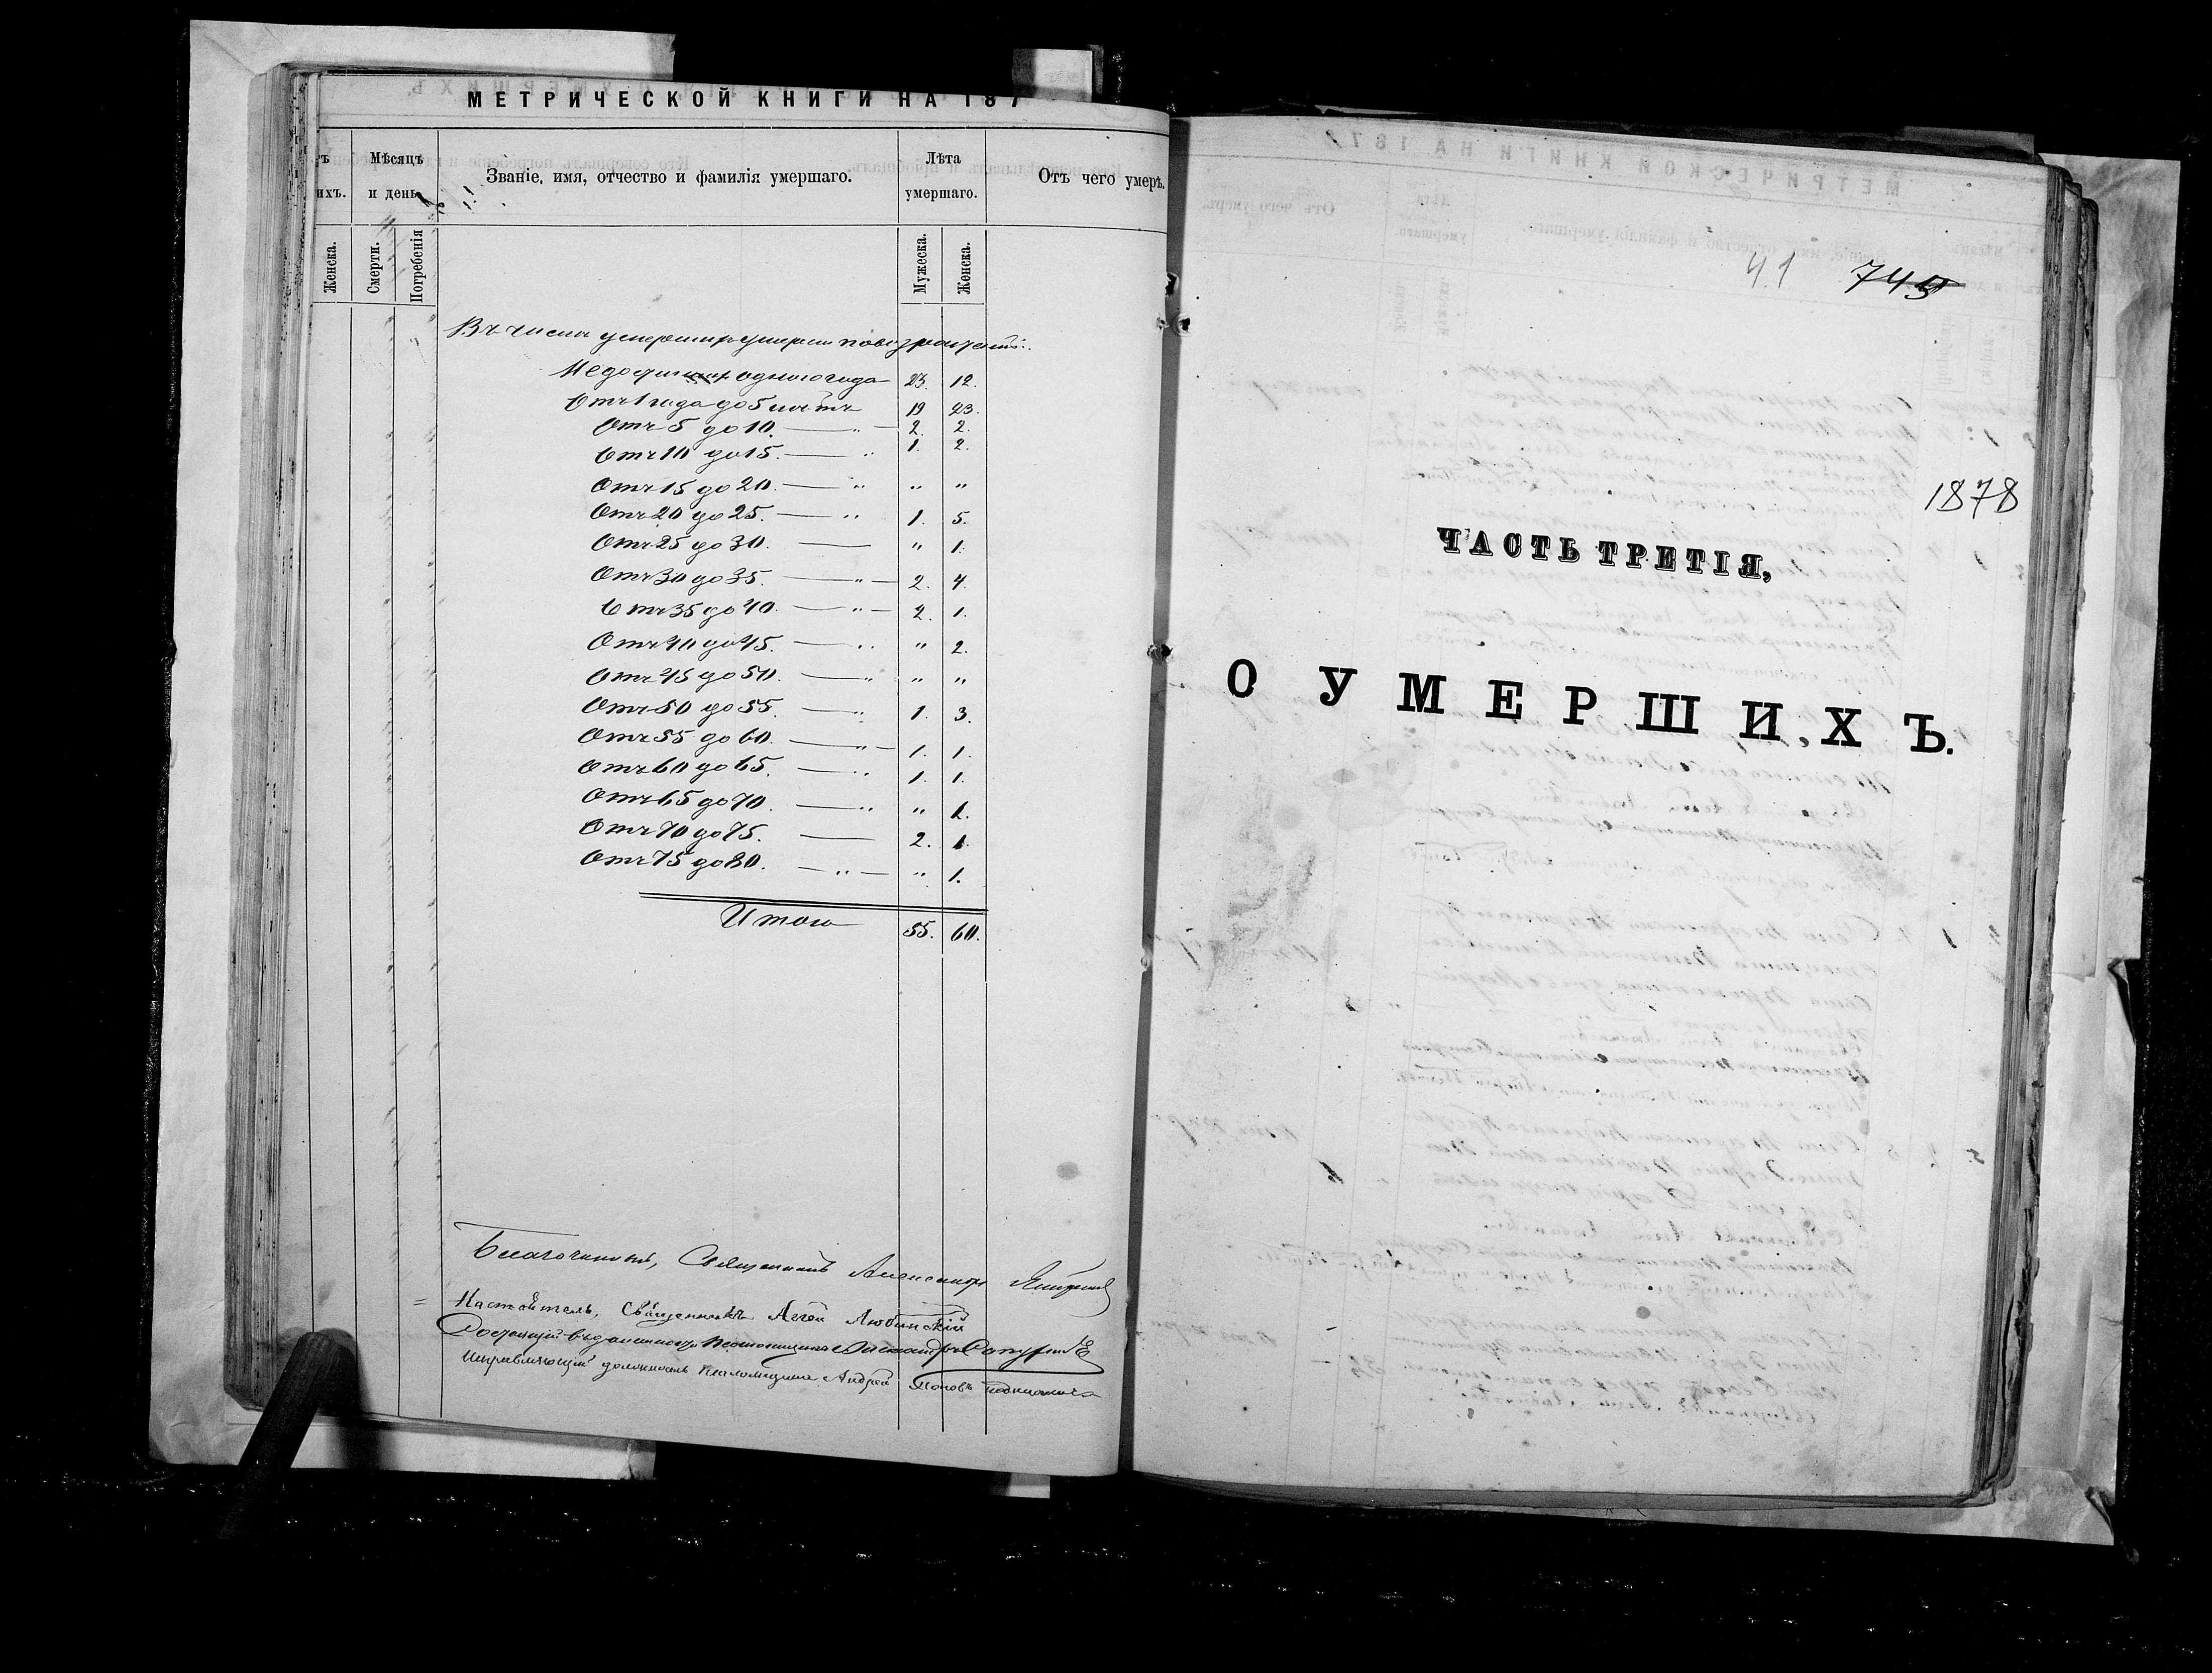 МЕТРИЧЕСКОЙ КНИГИ НА 187
ъ Мѣсяцъ Званіе, имя, отчество и фамилія умершаго. Лѣта Отъ чего умеръ.
ихъ. и день. умершаго.
Женска. Смерти. Погребенія Мужеска. Женска.
Въ числѣ умершихъ умерли по возрастамъ:
Недо одного года 23. 12.
Отъ 1 года до 5 лѣтъ 19 23.
Отъ 5 до 10. — „ — 2. 2.
Отъ 10 до 15. — „ 1. 2.
Отъ 15 до 20. — „ „ „
Отъ 20 до 25. — „ 1. 5.
Отъ 25 до 30. — „ 1.
Отъ 30 до 35. — „ — 2. 4.
Отъ 35 до 40. — „ — 2. 1.
Отъ 40 до 45. — „ „ 2.
Отъ 45 до 50. — „ „ „
Отъ 50 до 55. — „ 1. 3.
Отъ 55 до 60. — „ — 1. 1.
Отъ 60 до 65. — „ 1. 1.
Отъ 65 до 70. — „ „ 1.
Отъ 70 до 75. — 2. 1.
Отъ 75 до 80. — „ — „ 1.
Итого 55. 60.
Благочинный, Священникъ Александръ
Настоятель, Священникъ Аггей Любинскій
Псаломщика
Исправляющій должность Псаломщика Андрей Поповъ
41 745
1878
ЧАСТЬ ТРЕТІЯ,
О УМЕРШИХЪ.